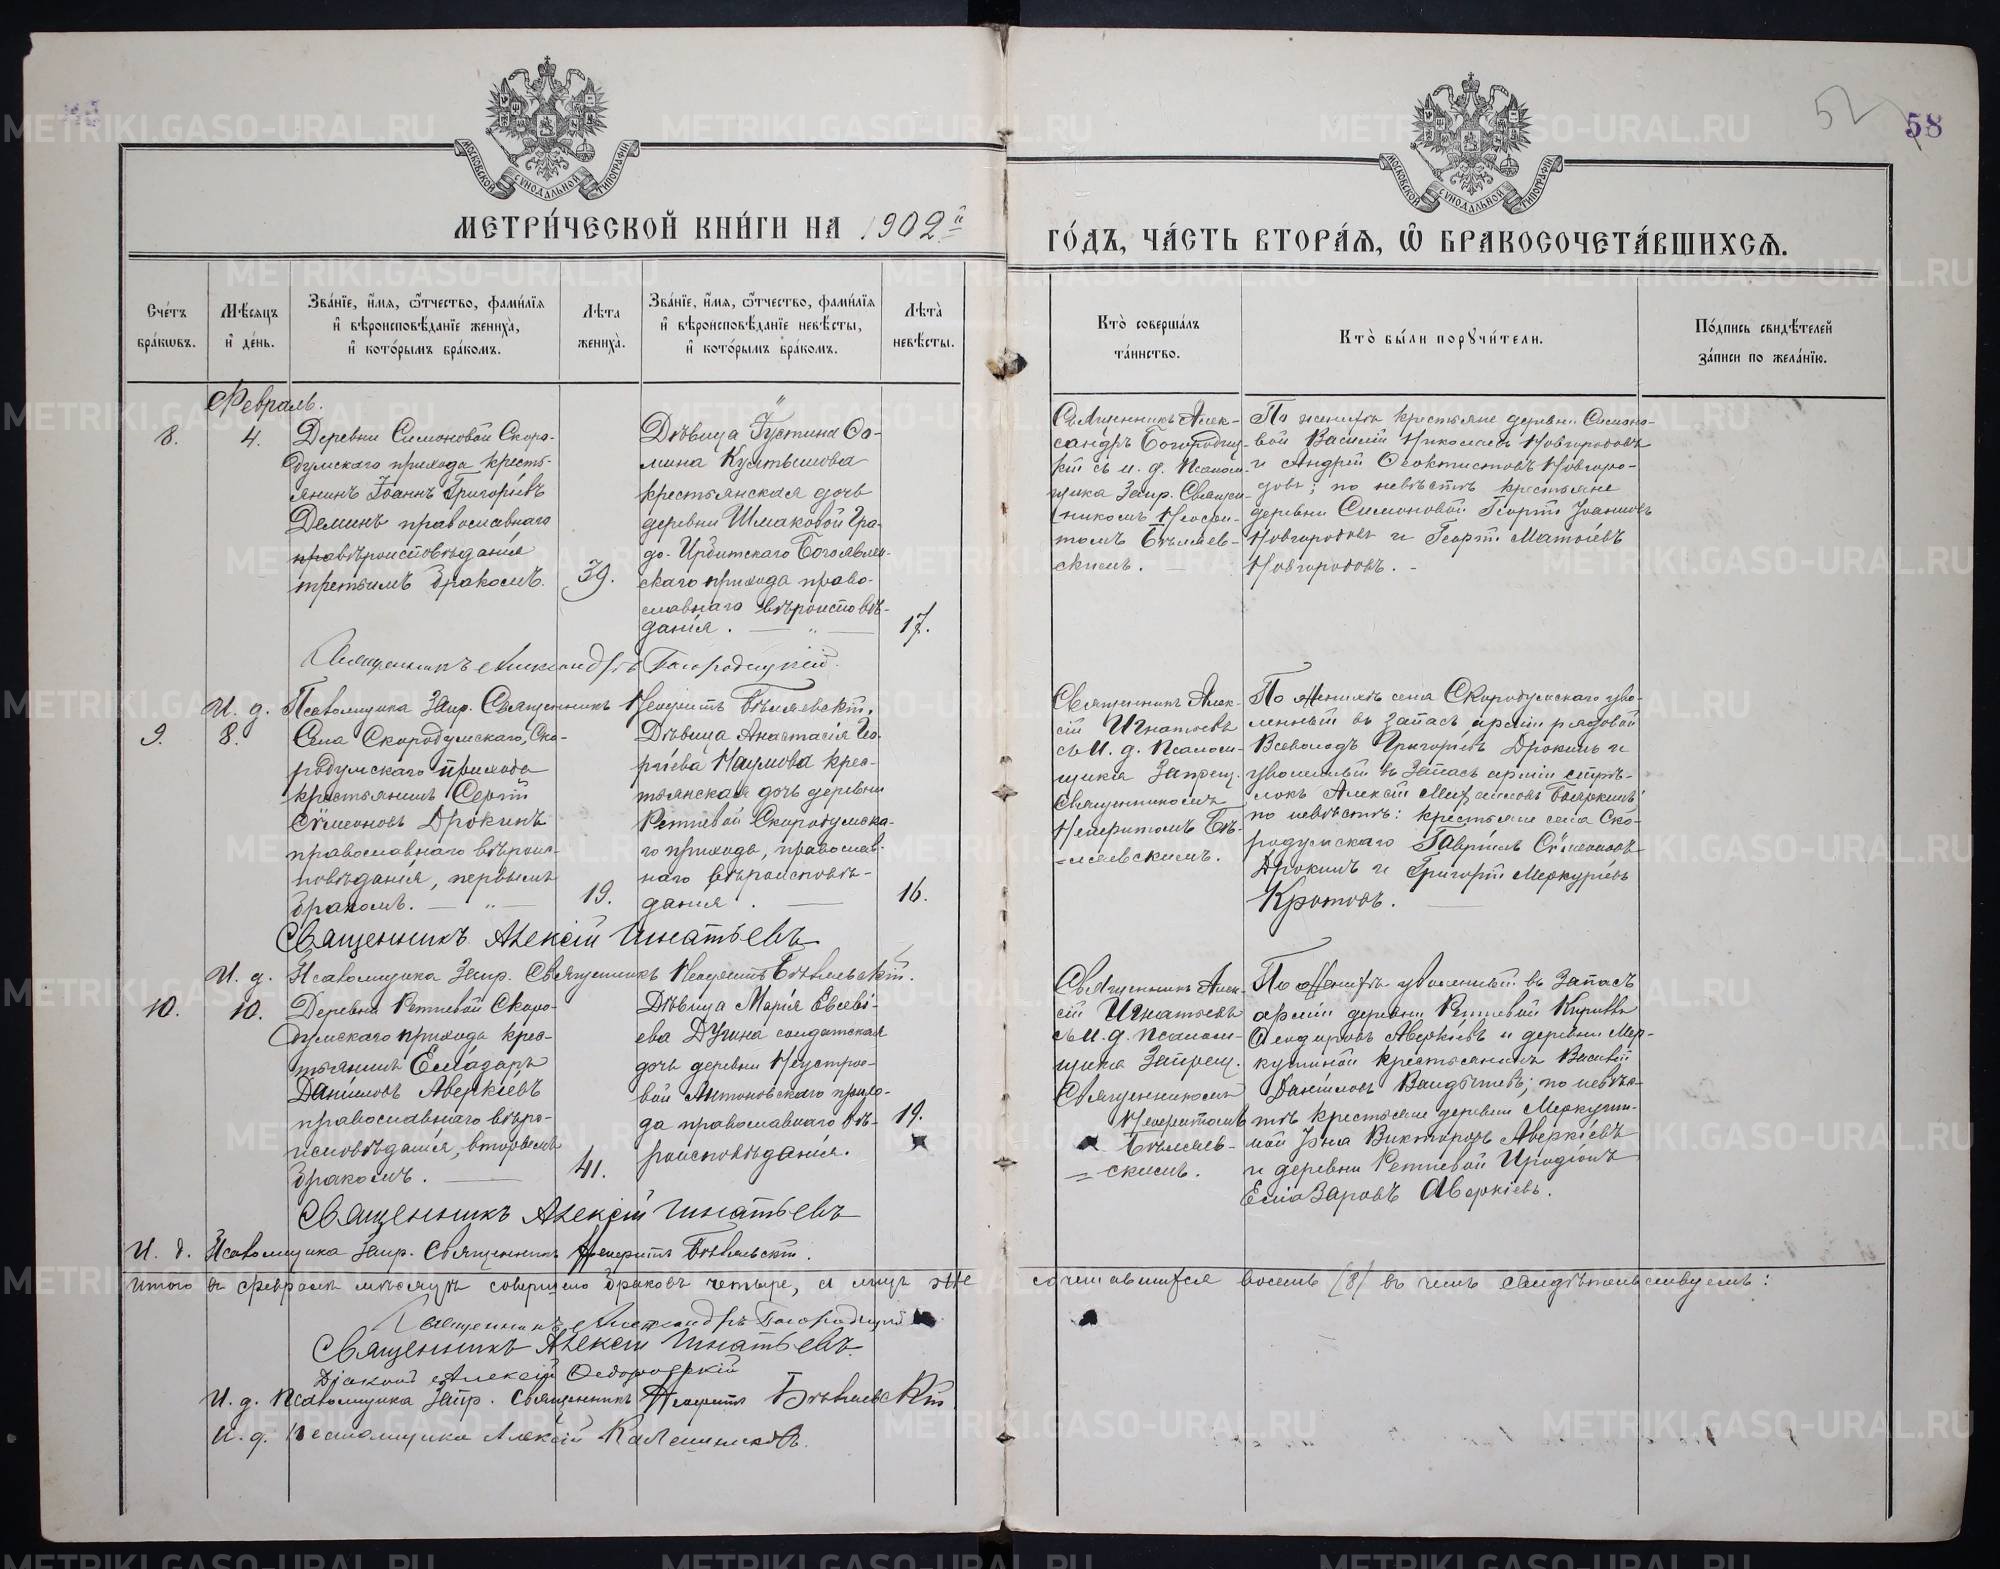 58
52
МОСКОВСКОЙ СѴНОДАЛЬНОЙ ТИПОГРАФІИ
МОСКОВСКОЙ СѴНОДАЛЬНОЙ ТИПОГРАФІИ
МЕТРИ́ЧЕСКОЙ КНИ́ГИ НА 1902й
ГО́ДЪ, ЧА́СТЬ ВТОРА́Ѧ, Ѡ҆ БРАКОСОЧЕТА́ВШИХСѦ.
Сче́тъ бра́кѡвъ.
Мѣ́сяцъ и҆ де́нь.
Зва́нїе, и҆́мѧ, ѻ҆́тчество, фами́лїѧ и҆ вѣроисповѣ́данїе жениха̀, и҆ кото́рымъ бра́комъ.
Лѣ́та жениха̀.
Зва́нїе, и҆́мѧ, ѻ҆́тчество, фами́лїѧ и҆ вѣроисповѣ́данїе невѣ́сты, и҆ кото́рымъ бра́комъ.
Лѣ́та невѣ́сты.
Кто̀ соверша́лъ та́инство.
Кто̀ бы́ли порꙋчи́тели.
По́дпись свидѣ́телей за́писи по жела́нїю.
Февраль.
8.
4.
Деревни Симоновой Скоро-
думскаго прихода кресть-
янинъ Іоаннъ Григоріевъ
Деминъ православнаго
вѣроисповѣданія
третьимъ бракомъ.
39.
Дѣвица Іустина Ѳо-
мина
крестьянская дочь
деревни Шмаковой Гра-
до-Ирбитскаго Богоявлен-
скаго прихода право-
славнаго вѣроисповѣ-
данія.
17.
Священникъ Алек-
сандръ Богородиц-
кій съ и. д. Псалом-
щика Запр. Священ-
никомъ Неофи-
томъ Бѣляев-
скимъ.
По женихѣ крестьяне деревни Симоно-
вой Василій Николаевъ Новгородовъ
и Андрей Ѳеоктистовъ Новгоро-
довъ; по невѣстѣ крестьяне
деревни Симоновой Георгій Іоанновъ
Новгородовъ и Георгій Матѳіевъ
Новгородовъ.
Священникъ Александръ Богородицкій.
И. д. Псаломщика Запр. Священникъ Неофитъ Бѣляевскій.
9.
8.
Села Скородумскаго, Ско-
родумскаго прихода
крестьянинъ Сергій
Сѵмеоновъ Дрокинъ
православнаго вѣроис-
повѣданія, первымъ
бракомъ.
19.
Дѣвица Анастасія Гео-
ргіева Наумова крес-
тьянская дочь деревни
Ретневой Скородумска-
го прихода, православ-
наго вѣроисповѣ-
данія.
16.
Священникъ Алек-
сій Игнатьевъ
съ И. д. Псалом-
щика Запрещ.
Священникомъ
Неофитомъ Бѣ-
ляевскимъ.
По женихѣ села Скородумскаго уво-
ленный въ запасъ арміи рядовой
Всеволодъ Григорьевъ Дрокинъ и
уволенный въ запасъ арміи стрѣ-
локъ Алексій Михаиловъ Бояркинъ
по невѣстѣ: крестьяне села Ско-
родумскаго Гавріилъ Сѵмеоновъ
Дрокинъ и Григорій Меркуріевъ
Кротовъ.
Священникъ Алексій Игнатьевъ
И. д. Псаломщика Запр. Священникъ Неофитъ Бѣляевскій.
10.
10.
Деревни Ретневой Скоро-
думскаго прихода крес-
тьянинъ Еліазаръ
Даніиловъ Аверкіевъ
православнаго вѣро-
исповѣданія, вторымъ
бракомъ.
41.
Дѣвица Марія Евсеві-
ева Дугина солдатская
дочь деревни Неустрое-
вой Антоновскаго прихо-
да православнаго вѣ-
роисповѣданія.
19.
Священникъ Алек-
сій Игнатьевъ
съ И. д. Псалом-
щика Запрещ.
Священникомъ
Неофитомъ
Бѣляев-
скимъ.
По женихѣ уволенный въ запасъ
арміи деревни Ретневой Кириллъ
Ѳеодоровъ Аверкіевъ и деревни Мер-
кушиной крестьянинъ Василій
Даніиловъ; по невѣс-
тѣ крестьяне деревни Меркуши-
ной Викторовъ Аверкіевъ
и деревни Ретневой Иродіонъ
Еліазаровъ Аверкіевъ.
Священникъ Алексій Игнатьевъ
И. д. Псаломщика Запр. Священникъ Неофитъ Бѣляевскій.
Итого въ Февралѣ мѣсяцѣ совершено браковъ четыре, а лицъ же сочетавшихся восемь (8) въ чемъ свидѣтельствуемъ:
Священникъ Александръ Богородицкій
Священникъ Алексій Игнатьевъ.
Діаконъ Алексій
И. д. Псаломщика Запр. Священникъ Неофитъ Бѣляевскій
И. д. Псаломщика Алексій Калашниковъ.
METRIKI.GASO-URAL.RU